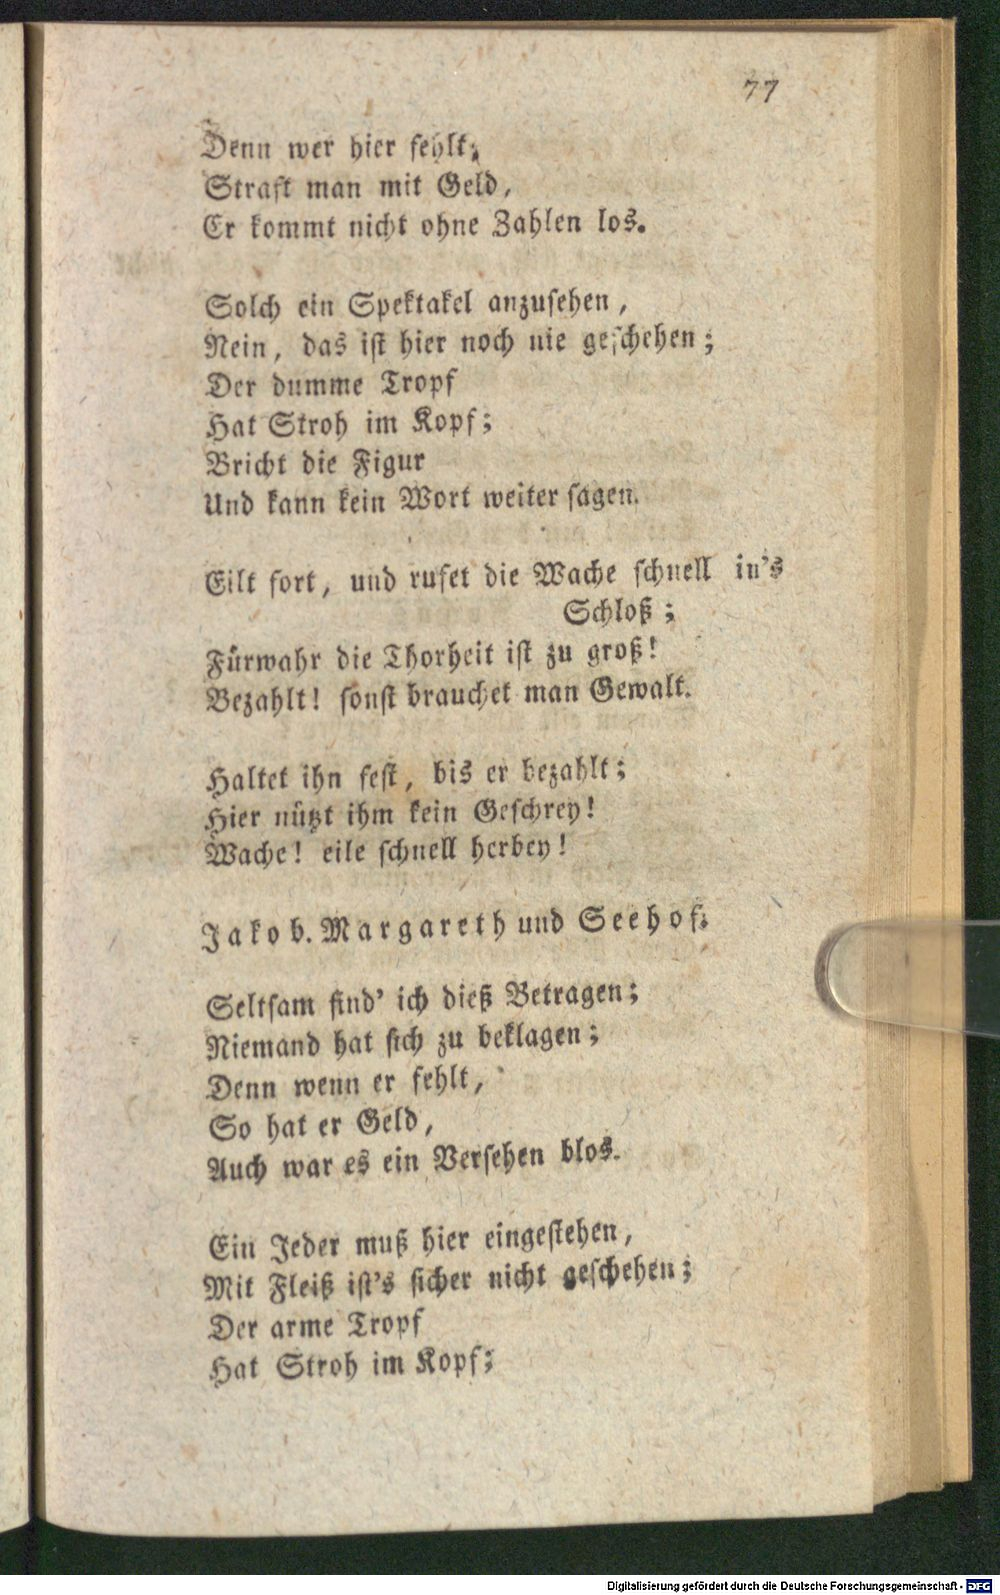 77
Denn wer hier fehlt,
Straft man mit Geld,
Er kommt nicht ohne Zahlen los.
Solch ein Spektakel anzusehen,
Nein, das ist hier noch nie geschehen;
Der dumme Tropf
Hat Stroh im Kopf;
Bricht die Figur
Und kann kein Wort weiter sagen.
Eilt fort, und rufet die Wache schnell in's
Schloß;
Fürwahr die Thorheit ist zu groß!
Bezahlt! sonst brauchet man Gewalt.
Haltet ihn fest, bis er bezahlt;
Hier nützt ihm kein Geschrey!
Wache! eile schnell herbey!
Jakob. Margareth und Seehof.
Seltsam find' ich dieß Betragen;
Niemand hat sich zu beklagen;
Denn wenn er fehlt,
So hat er Geld,
Auch war es ein Versehen blos.
Ein Jeder muß hier eingestehen,
Mit Fleiß ist's sicher nicht geschehen;
Der arme Tropf
Hat Stroh im Kopf;
Digitalisierung gefördert durch die Deutsche Forschungsgemeinschaft - DFG